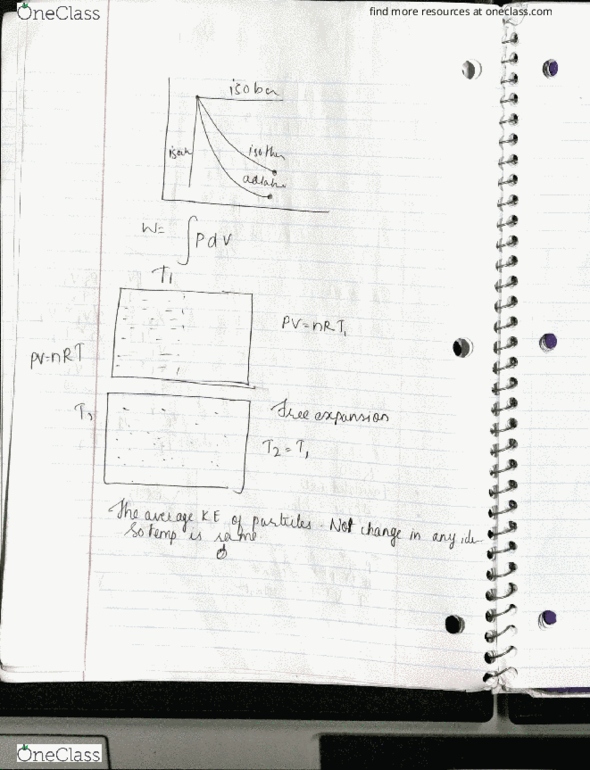 OneClass
find more resources at oneclass.com
isobar
isoch
isother
adiaba
W= ∫PdV
T₁
PV=nRT₁
PV=nRT
T₂
Free expansion
T₂=T₁
The average K.E of particles. Not change in any
So temp is same.
OneClass